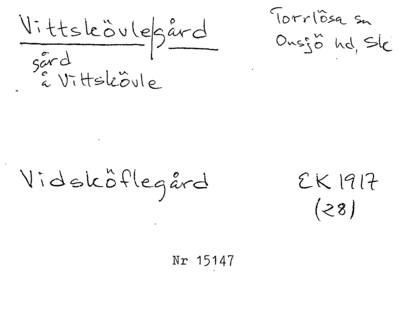 Vittskövle|gård
Torrlösa sn
Onsjö hd, Sk
gård
å Vittskövle
Vidsköflegård
EK 1917
(28)
Nr 15147